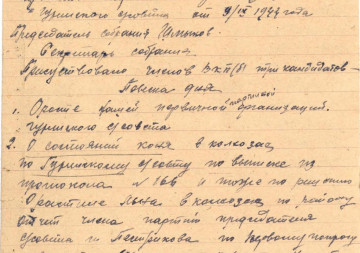 Гуринского с/совета от 9/IX 1944 года
Председатель собрания
Секретарь собрания
Присутствовало членов ВКП(б) три кандидатов-
Повестка дня
1. О росте нашей первичной партийной организации.
Гуринского с/совета
2. О состоянии коня в колхозах
по Гуринскому с/совету по выписке из
протокола № 166 и тоже по решению
О льна в колхозах по району
отчет члена партии председателя
с/совета т. Петрикова по Первому вопросу